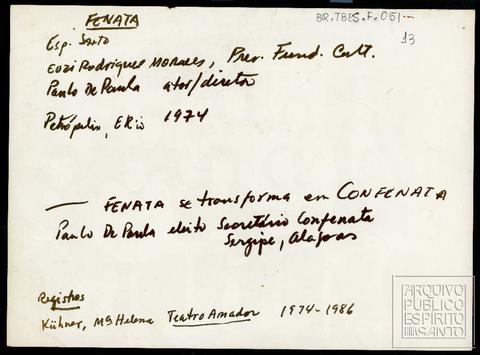 FENATA
BR.TBES.F.051-
13
Esp. Santo
Eozi Rodrigues Moraes, Pres. Fund. Cult.
Paulo De Paula ator/diretor
Petrópolis, E Rio 1974
— FENATA se transforma em CONFENATA
Paulo De Paula eleito Secretário Confenata
Sergipe, Alagoas
Registros
Kühner, Mª Helena Teatro Amador 1974-1986
ARQUIVO
PÚBLICO
ESPÍRITO
SANTO